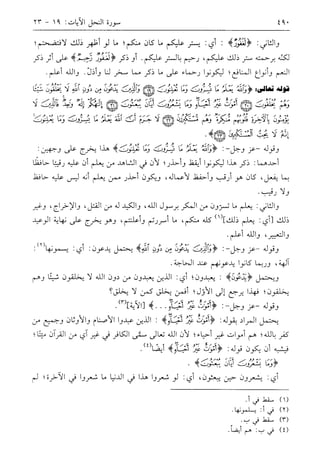 ٤٩٠ سورة النحل الآيات: ١٩ - ٢٣
والثاني: ﴿لَغَفُورٌ﴾: أي: يستر عليكم ما كان منكم؛ ما لو أظهر ذلك لافتضحتم؛
لكنه برحمته ستر ذلك عليكم، رحيم بالستر عليكم. أو ذكر ﴿لَغَفُورٌ﴾ على أثر ذكر
النعم وأنواع المنافع؛ ليكونوا رحماء على ما ذكر مما سخر لنا وأذل. والله أعلم.
قوله تعالى: ﴿وَٱللَّهُ يَعْلَمُ مَا تُسِرُّونَ وَمَا تُعْلِنُونَ ۝ وَٱلَّذِينَ يَدْعُونَ مِن دُونِ ٱللَّهِ لَا يَخْلُقُونَ شَيْئًا
وَهُمْ يُخْلَقُونَ ۝ أَمْوَٰتٌ غَيْرُ أَحْيَآءٍ وَمَا يَشْعُرُونَ أَيَّانَ يُبْعَثُونَ ۝ إِلَٰهُكُمْ إِلَٰهٌ وَٰحِدٌ فَٱلَّذِينَ لَا
يُؤْمِنُونَ بِٱلْءَاخِرَةِ قُلُوبُهُم مُّنكِرَةٌ وَهُم مُّسْتَكْبِرُونَ ۝ لَا جَرَمَ أَنَّ ٱللَّهَ يَعْلَمُ مَا يُسِرُّونَ وَمَا يُعْلِنُونَ
إِنَّهُ لَا يُحِبُّ ٱلْمُسْتَكْبِرِينَ ۝﴾.
وقوله -عز وجل-: ﴿وَٱللَّهُ يَعْلَمُ مَا تُسِرُّونَ وَمَا تُعْلِنُونَ﴾ هذا يخرج على وجهين:
أحدهما: ذكر هذا ليكونوا أيقظ وأحذر؛ لأن في الشاهد من يعلم أن عليه رقيبًا حافظًا
بما يفعل، كان هو أرقب وأحفظ لأعماله، ويكون أحذر ممن يعلم أنه ليس عليه حافظ
ولا رقيب.
والثاني: يعلم ما تسرون من المكر برسول الله، والكيد له من القتل، والإخراج، وغير
ذلك [أي: يعلم ذلك](١) كله منكم، ما أسررتم وأعلنتم، وهو يخرج على نهاية الوعيد
والتعيير، والله أعلم.
وقوله -عز وجل-: ﴿وَٱلَّذِينَ يَدْعُونَ مِن دُونِ ٱللَّهِ﴾ يحتمل يدعون: أي: يسمونها(٢)
آلهة، وربما كانوا يدعونهم عند الحاجة.
ويحتمل ﴿يَدْعُونَ﴾: يعبدون؛ أي: الذين يعبدون من دون الله لا يخلقون شيئًا وهم
يخلقون؛ فهذا يرجع إلى الأول؛ أفمن يخلق كمن لا يخلق؟
وقوله -عز وجل-: ﴿أَمْوَٰتٌ غَيْرُ أَحْيَآءٍ...﴾ [الآية](٣).
يحتمل المراد بقوله: ﴿أَمْوَٰتٌ غَيْرُ أَحْيَآءٍ﴾: الذين عبدوا الأصنام والأوثان وجميع من
كفر بالله؛ هم أموات غير أحياء؛ لأن الله تعالى سمّى الكافر في غير آي من القرآن ميتًا؛
فيشبه أن يكون قوله: ﴿أَمْوَٰتٌ غَيْرُ أَحْيَآءٍ﴾ أيضًا(٤).
﴿وَمَا يَشْعُرُونَ أَيَّانَ يُبْعَثُونَ﴾.
أي: يشعرون حين يبعثون، أي: لو شعروا هذا في الدنيا ما شعروا في الآخرة؛ لم
(١) سقط في أ.
(٢) في أ: يسلمونها.
(٣) سقط في ب.
(٤) في ب: هم أيضًا.